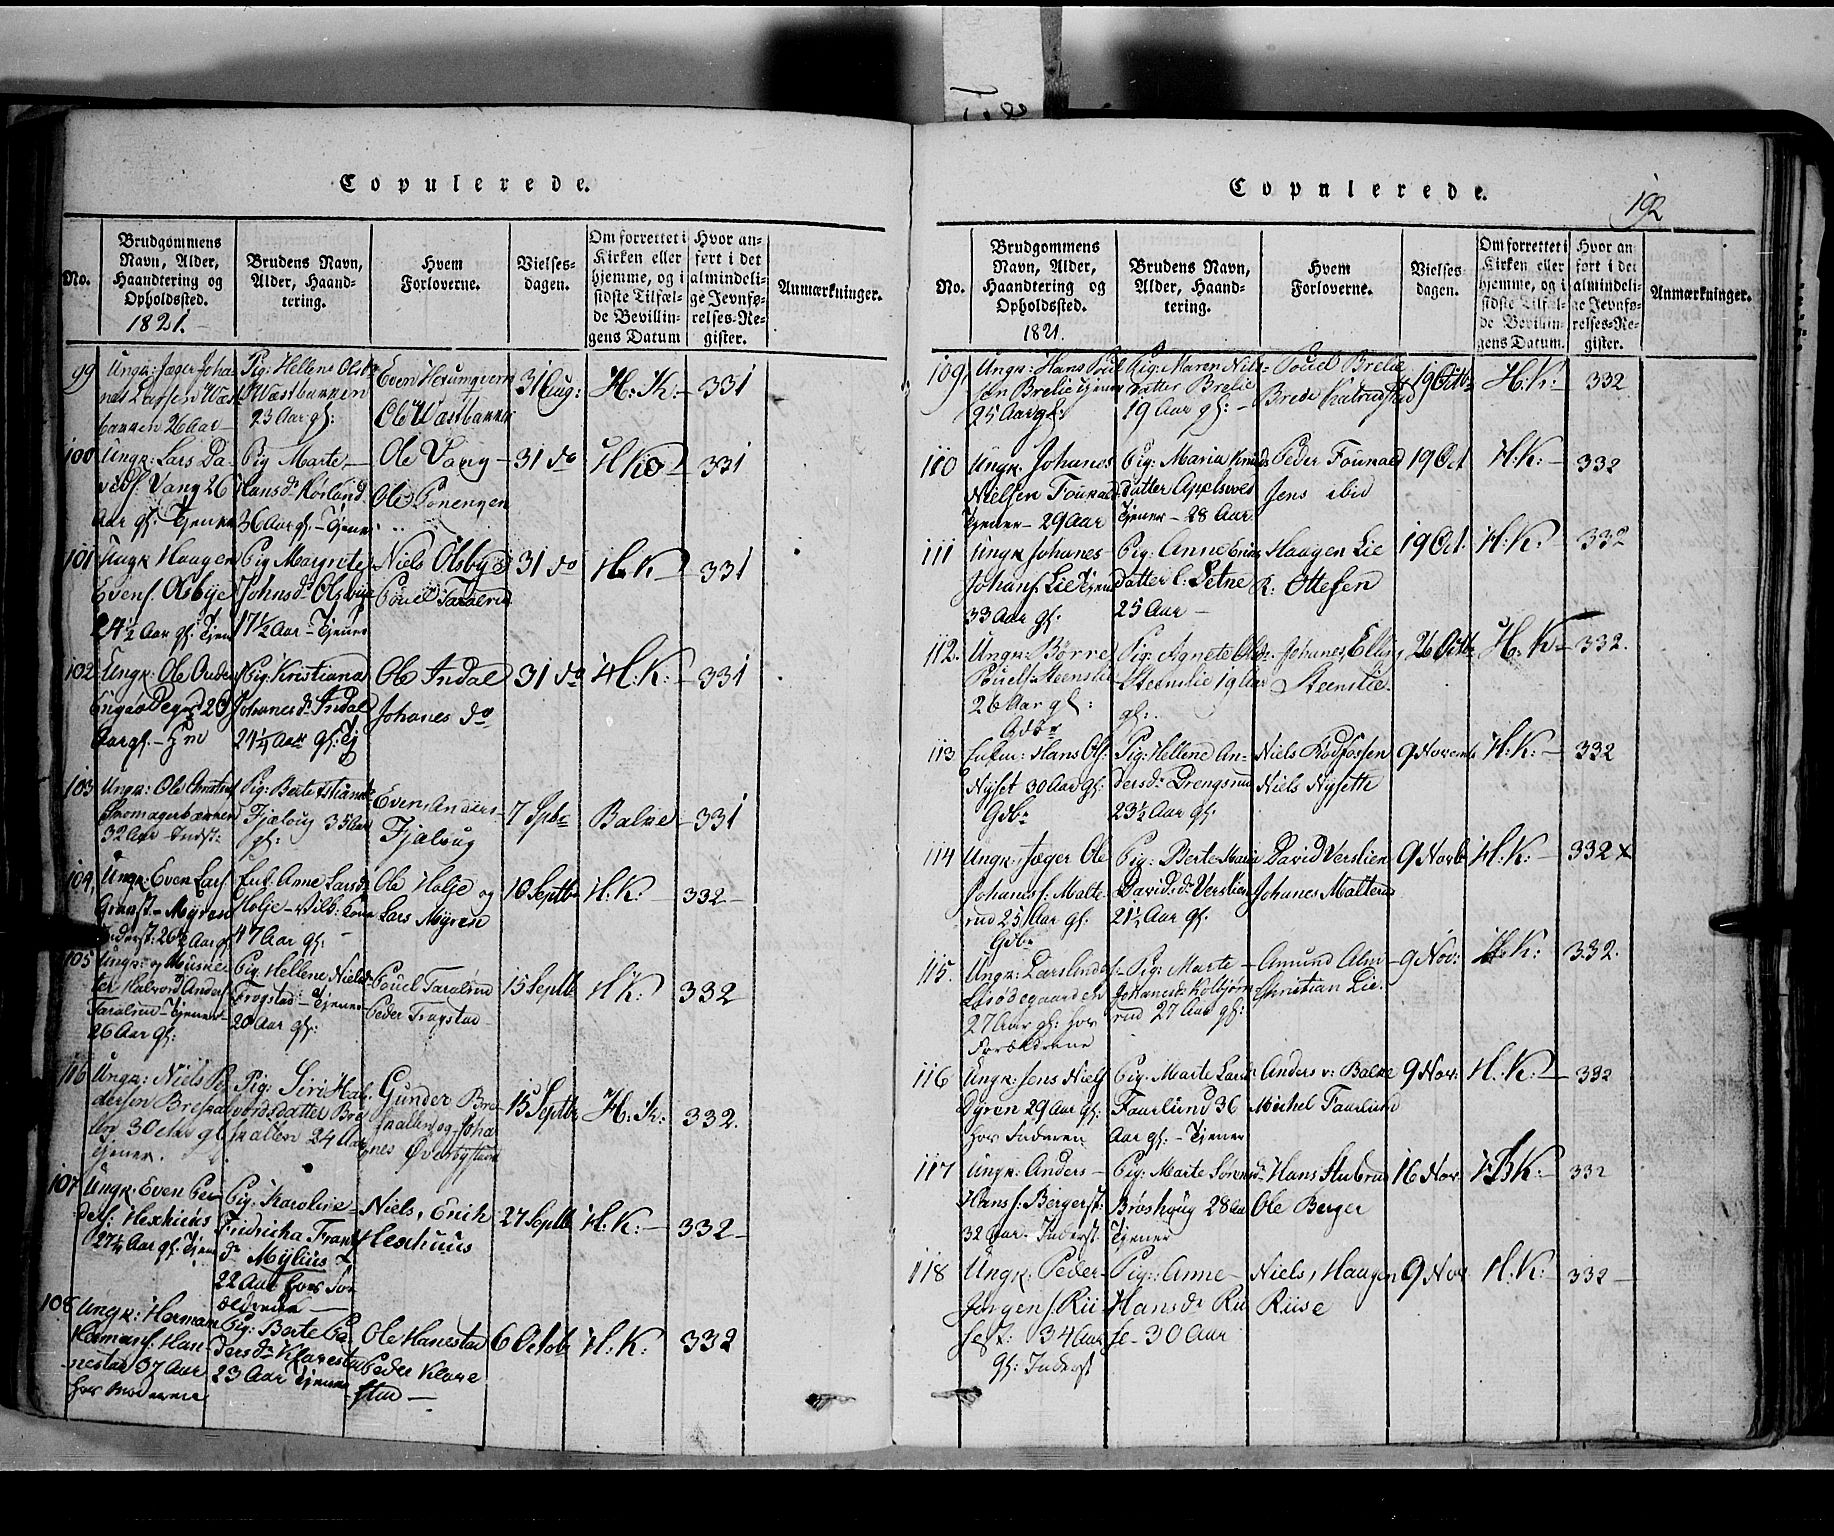 Copulerede.
No.
Brudgommens Navn, Alder, Haandtering og Opholdssted.
1821.
Brudens Navn, Alder, Haandtering.
Hvem Forloverne.
Vielsesdagen.
Om forrettet i Kirken eller hjemme, og i sidste Tilfælde Bevillingens Datum
Hvor anført i det almindelige Jevnførelses-Register.
Anmærkninger.
99 Ungk: Jæger Johanes Larsen 26 Aar
Pig: Hellene
25 Aar gl:
Even
Ole
31 Aug: H: K: 331
100 Ungk: Lars Davids: Vang 26 Aar gl. Tjener
Pig Marte Hansdr
36 Aar gl. Tjener
Ole Vang
Ole Ponengen
31 do H K 331
101 Ungk Haagen Evens. Olsbye
24½ Aar gl. Tjen
Pig Margrete Johnsdr Olsbye
17½ Aar Tjener
Niels Olsbye
Pouel Faralund
31 do H. K 331
102 Ungk: Ole
Aar gl.
Pig: Kristiana Johanesdr Indal
21¼ Aar gl: Tj
Ole Indal
Johanes do
31 do H. K: 331
103 Ungk: Ole
32 Aar Indst:
Pig: Berte
Fjæloug 35 Aar gl:
Even Anders
Fjæloug
7 Spbr Balke 331
104, Ungk: Even Lars
Myren
Inderst: 26½ Aar gl
Enk. Anne Larsdr
Holje
47 Aar gl:
Ole Holje og
Lars Myren
10 Septbr H. K: 332
105 Ungk: og Musketer Halvord Anders
Faralund Tjener
26 Aar gl:
Pig. Hellene Nielsdr
Frogstad Tjener
20 Aar gl:
Pouel Faralund
Peder Frogstad
15 Septb H K: 332
106 Ungk: Niels Pedersen
30 Aar gl
Tjener.
Pig: Siri Halvordsdatter
24 Aar
Gunder
og Johanes
15 Septbr H: K: 332.
107 Ungk. Even Peders: Hexhuus
27¼ Aar gl. Tjen
Pig. Karoline Fridricha
Mylius
22 Aar hos Forældrene
Niels, Erich
Hexhuus
27 Septb H: K: 332
108 Ungk: Herman Hermans: Hannestad 37 Aar
hos Moderen
Pig. Berte Pedersdr Klavestad
23 Aar Tjener
Ole Hanestad
Peder Klavestad
6 Octob H: K: 332
Copulerede.
192
No.
Brudgommens Navn, Alder, Haandtering og Opholdssted.
1821.
Brudens Navn, Alder, Haandtering.
Hvem Forloverne.
Vielsesdagen.
Om forrettet i Kirken eller hjemme, og i sidste Tilfælde Bevillingens Datum.
Hvor anført i det almindelige Jevnførelses-Register.
Anmærkninger.
109 Ungk: Hans Brelie Tjener
25 Aar gl:
Pig: Maren Nilsdatter Brelie
19 Aar gl:
Pouel Brelie
Brede
19 Octb H: K: 332
110 Ungk: Johanes Nielsen
Tjener 29 Aar
Pig: Maria Knudsdatter
Tjener 28 Aar
Peder
Jens ibid
19 Oct H: K: 332
111 Ungk: Johanes Johans: Lie Tjener
33 Aar gl.
Pig: Anne datter l: Setne
25 Aar
Haagen Lie
R: Ottesen
19 Oct. H: K: 332
112. Ungk: Børre Pouels: Steenslie
26 Aar gl:
Gdbr
Pig: Agnete
Steenslie 19 Aar gl:
Johanes, Elling
Steenslie.
26 Octb H: K 332.
113 Hans Ols: Nyset 30 Aar gl:
Gdbr
Pig: Hellene Andersdr Drengsrud
23½ Aar gl.
Niels
Niels Nysetth
9 Novemb H: K: 332
114 Ungk: Jæger Ole Johanes s: Malterud 25 Aar gl.
Gdbr
Pig: Berte Maria Davidsdr Verslien
21½ Aar gl.
David Verslien
Johanes Malterud
9 Novb H: K: 332 x
115. Ungk: Lars
27 Aar gl: hos
Forældrene
Pig: Marte Johanesdr Kolbjørnrud 27 Aar gl:
Amund Alm
Christian Lie.
9 Nov: H: K: 332.
116 Ungk: Jens Niels
Dyren 29 Aar gl:
hos Faderen
Pig: Marte Larsdr
Faarlund 36 Aar gl. Tjener
Anders v: Balke
Michel Faarlund
9 Nov: H. K: 332
117 Ungk: Anders Hans s: Bergerst:
32 Aar. Inderst
Pig: Marte Sørensdr
Brøshoug 28 Aar
Tjener
Hans Stubrud
Ole Berger
16 Nov. K: 332
118 Ungk: Peder Jørgen s: Riise 34 Aar
gl: Inderst
Pig: Anne Hansdr Riise 30 Aar
Niels, Haagen
Riise
9 Nov H: K: 332